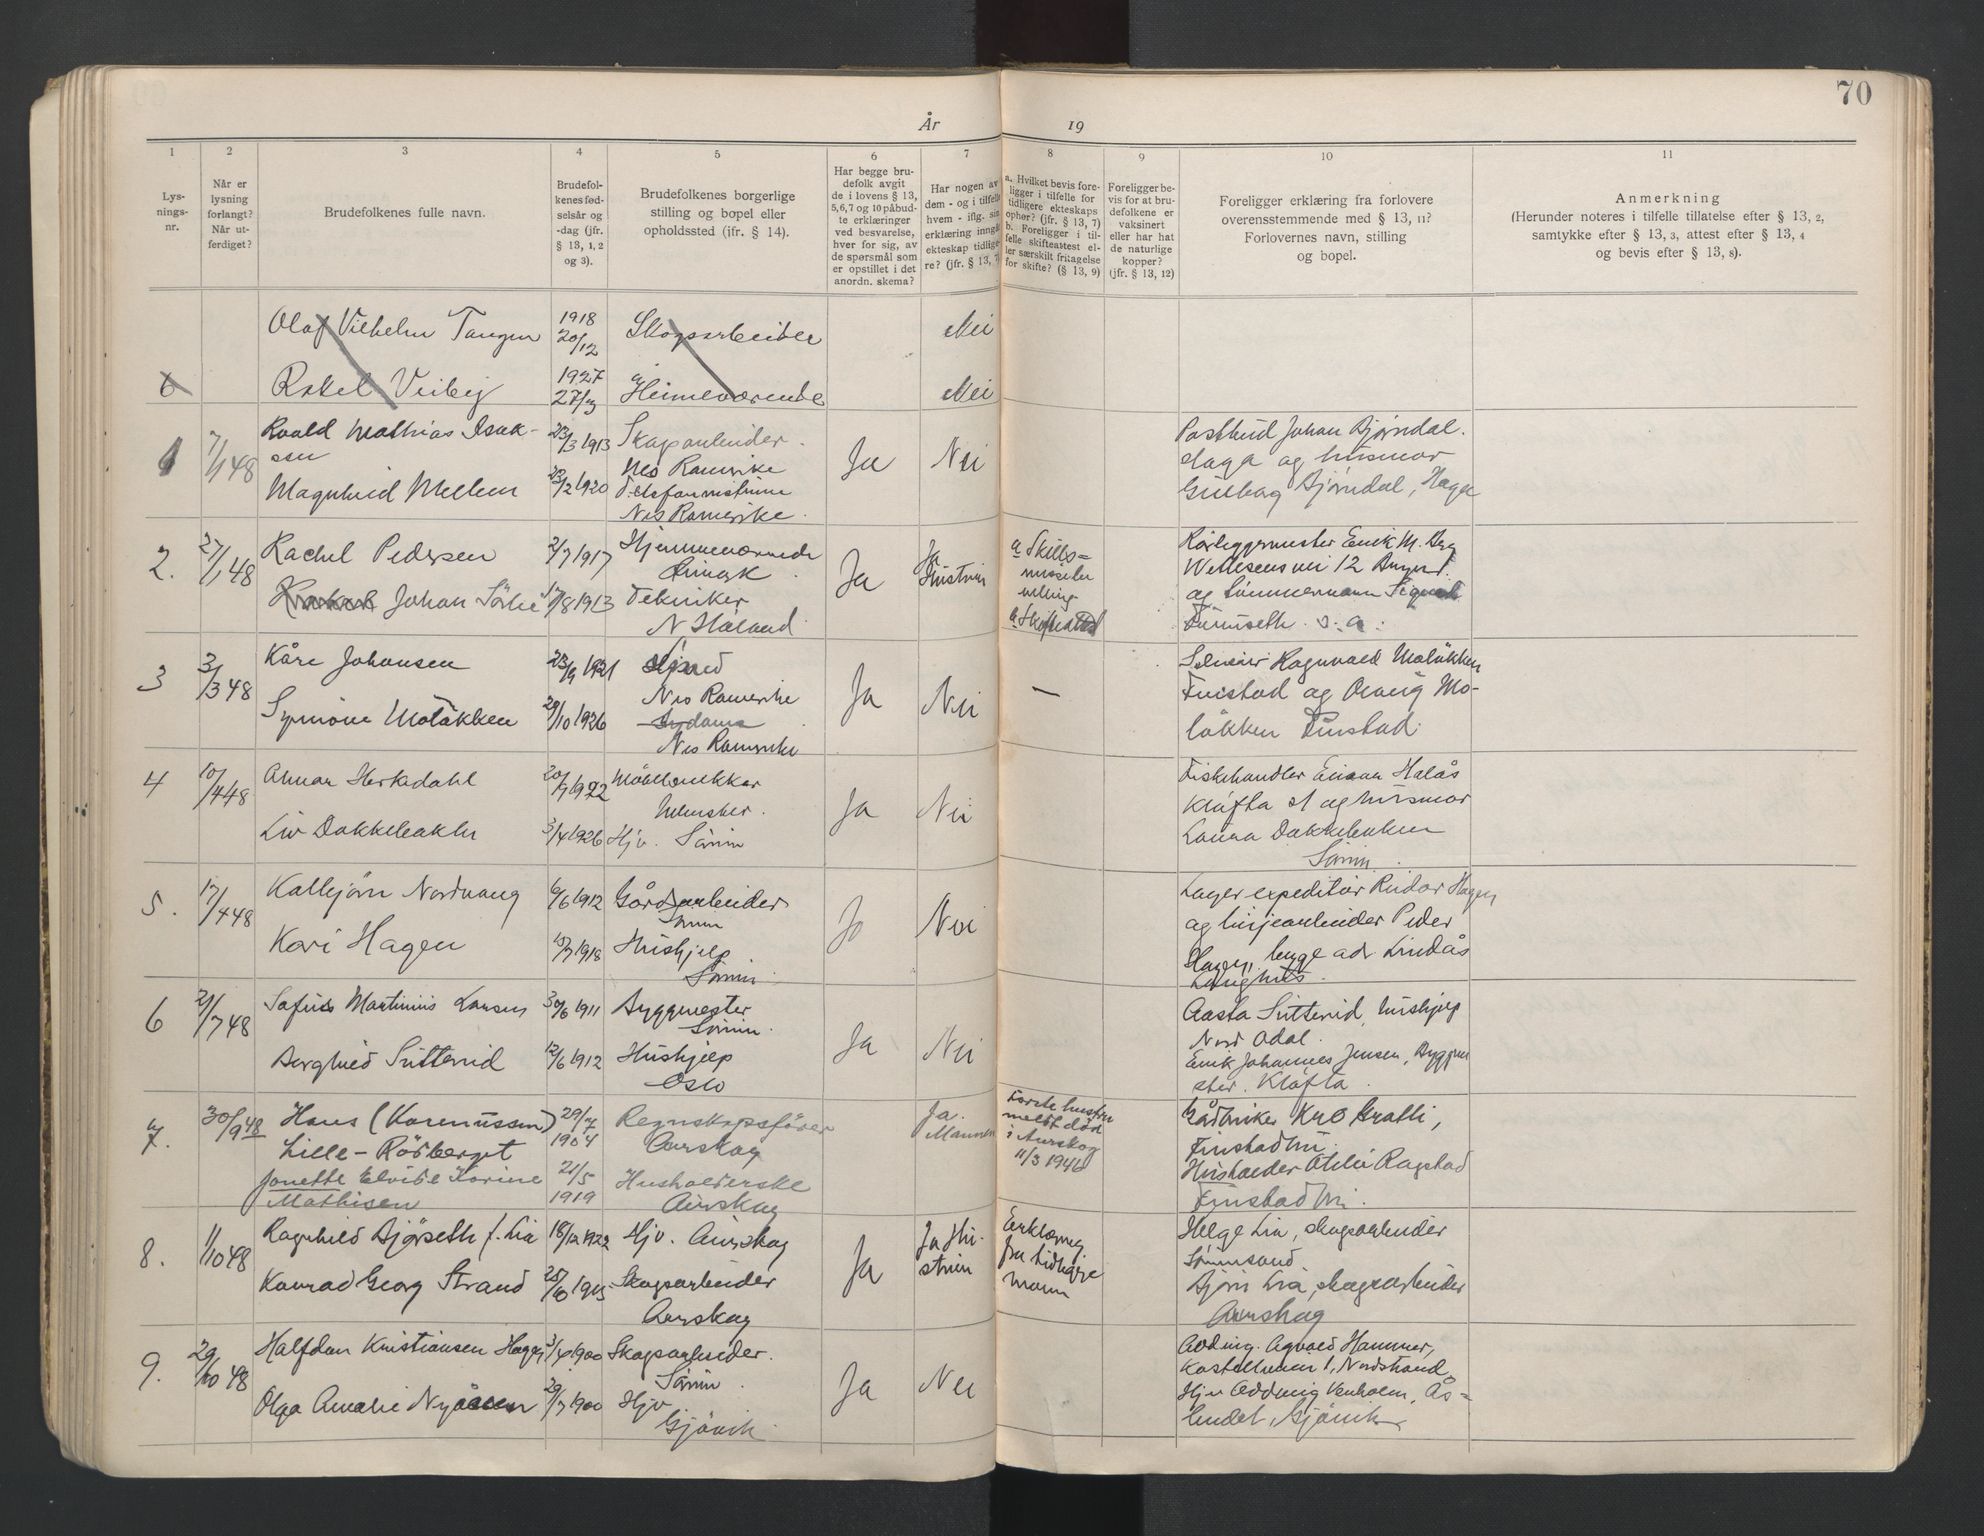 70
År 19
1 2 3 4 5 6 7 8 9 10 11
Lys-
nings-
nr.
Når er
lysning
forlangt?
Når ut-
ferdiget?
Brudefolkenes fulle navn.
Brudefol-
kenes fød-
selsår og
-dag (jfr.
§ 13, 1, 2
og 3).
Brudefolkenes borgerlige
stilling og bopel eller
opholdssted (jfr. § 14).
Har begge bru-
defolk avgit
de i lovens § 13,
5,6,7 og 10 påbud-
te erklæringer
ved besvarelse,
hver for sig, av
de spørsmål som
er opstillet i det
anordn. skema?
Har nogen av
dem - og i tilfelle
hvem - iflg. sin
erklæring inngå
ekteskap tidlige-
re? (jfr. § 13, 7)
a. Hvilket bevis fore-
ligger i tilfelle for
tidligere ekteskaps
ophør? (jfr. § 13, 7)
b. Foreligger i til-
felle skifteattest el-
ler særskilt fritagelse
for skifte? (§ 13, 9)
Foreligger be-
vis for at bru-
defolkene er
vaksinert
eller har hat
de naturlige
kopper?
(jfr. § 13, 12)
Foreligger erklæring fra forlovere
overensstemmende med § 13, 11?
Forlovernes navn, stilling
og bopel.
Anmerkning
(Herunder noteres i tilfelle tillatelse efter § 13, 2,
samtykke efter § 13, 3, attest efter § 13, 4
og bevis efter § 13, 8).
Olaf Vilhelm Tangen 1918 20/12 Skogsarbeider Nei
Rakel Veiby 1927 Heimeværende Nei
1 7/1 48 Roald Mathias Isak-
sen 23/3 1913 Skogarbeider.
Nes Romerike Ja Nei
Magnhild Mellem 23/2 1920 Telefonistinne
Nes Romerike.
Postbud Johan Bjørndal.
Haga og husmor
Gudbjørg Bjørndal, Haga
2. 27/1 48 Rachel Pedersen 2/7 1917 Hjemmeværende
Rimerk Ja Ja
Hustruen
Johan Sørlie 17/8 1913 Tekniker
N Høland
a Skils=
misse be
villing
Rørleggermester Erik M. Berg
12
og tømmermann Sigurd
Furuseth. s. a.
3 3/3 48 Kåre Johansen 23/9 1921
Nes Romerike Ja Nei —
Synnøve Moløkken 29/10 1926
Nes Romerike
Ragnvald Moløkken
Finstad og Solveig Mo-
løkken Finstad.
4 10/4 48 Herkedahl 20/7 1922 Møbelsnekker
Ja Nei
Liv Dokkebakken 3/4 1926 Hjv. Sørum
Fiskehandler Einar Halås
Kløfta st og husmor
Laura Dokkebakken
Sørum.
5. 17/4 48 Kallbjørn Nordvang 6/6 1912 Gårdsarbeider
Sørum Ja Nei
Kari Hagen 1918 Hushjelp
Sørum.
Lagerexpeditør Reidar Hagen
og linjearbeider Peder
Hagen, begge adr Lindås
6 21/7 48 Sofus Martinius Larsen 30/6 1911 Byggmester
Sørum. Ja Nei
Borghild Sætterid 12/6 1912 Hushjelp
Oslo
Aasta Sætterid, hushjelp
Nord Odal.
Erik Johannes Jensen, Byggme
ster. Kløfta.
7. 30/9 48 Hans (Karenussen) 29/7
1904 Regnskapsfører
Aurskog Ja.
Mannen
Lille-Rødberget
Jonette Elvide Karine
Mathisen 21/5
1919 Husholderske
Aurskog
Første hustru
meldt død
i Aurskog
11/3 1946
Gårdbruker
Finstadbru.
Ragstad
Finstadbru.
8. 1/10 48 Ragnhild Bjørseth f. Lia 18/12 1922 Hjv. Aurskog Ja Ja Hu-
struen
Konrad Georg Strand 1905 Skogsarbeider
Aurskog
Erklæring
fra tidligere
mann
Helge Lia, skogsarbeider
Bjørn Lia, skogsarbeider
Aurskog
9. 29/10 48 Halfdan Kristiansen Hagen 1900 Skogsarbeider.
Sørum. Ja Nei
Olga Amalie Nyåsen 29/7 1900 Hjv
Gjøvik.
Avding. Agvald Hammer,
1, Nordstrand
Gjøvik